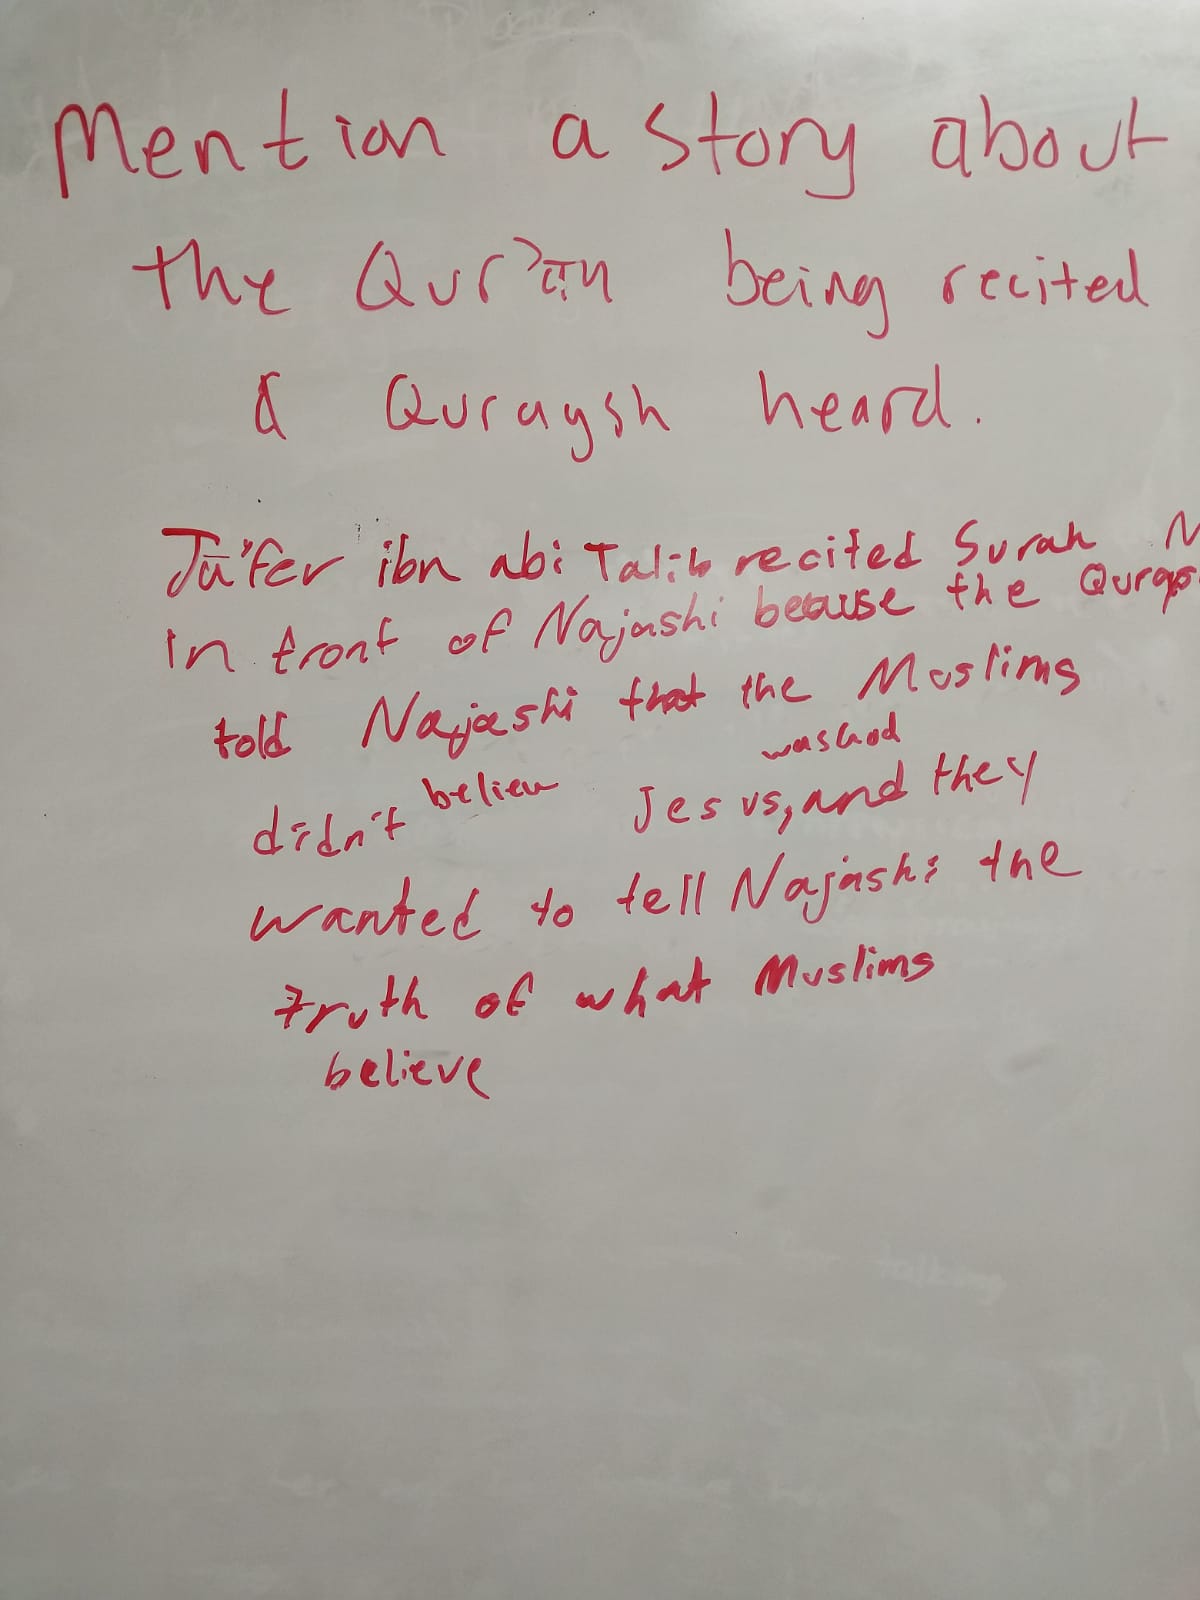 Mention a story about
the Qur'ān being recited
& Quraysh heard.
Jā'fer ibn abi Talib recited Surah M
in front of Najashi because the Quray
told Najashi that the Muslims
didn't believe Jesus, and they
wanted to tell Najashi the
truth of what Muslims
believe